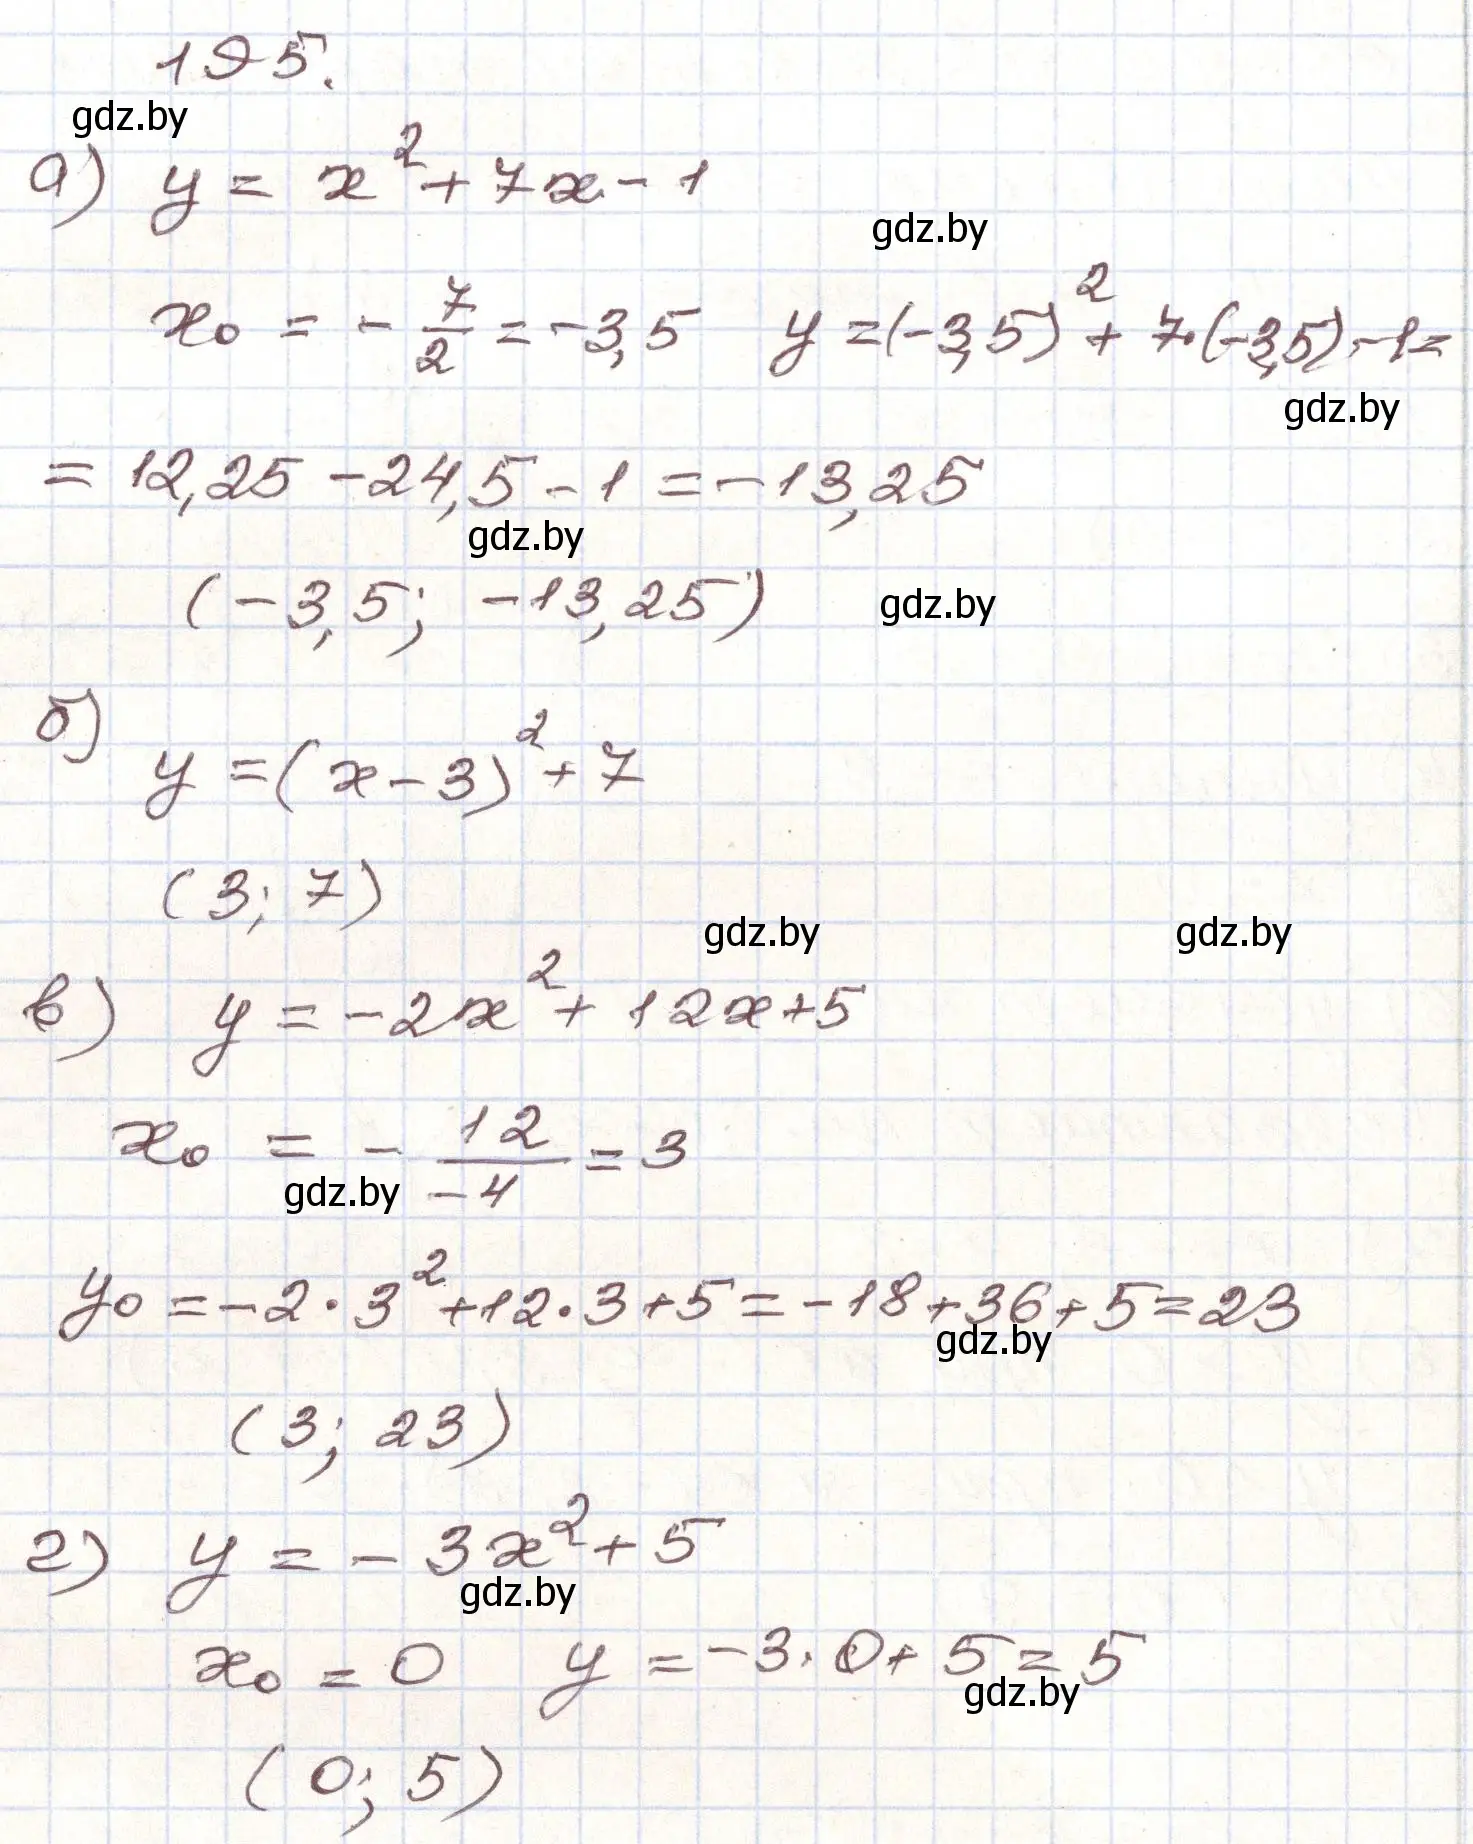 195.
gdz.by
а) y = x² + 7x - 1
gdz.by
x₀ = - 7/2 = -3,5 y = (-3,5)² + 7·(-3,5) - 1 =
gdz.by
= 12,25 - 24,5 - 1 = -13,25
gdz.by
(-3,5; -13,25) gdz.by
б) y = (x - 3)² + 7
(3; 7)
gdz.by gdz.by
в) y = -2x² + 12x + 5
x₀ = - 12/-4 = 3
gdz.by
y₀ = -2·3² + 12·3 + 5 = -18 + 36 + 5 = 23
gdz.by
(3; 23)
г) y = -3x² + 5
gdz.by
x₀ = 0 y = -3·0 + 5 = 5
gdz.by
(0; 5)